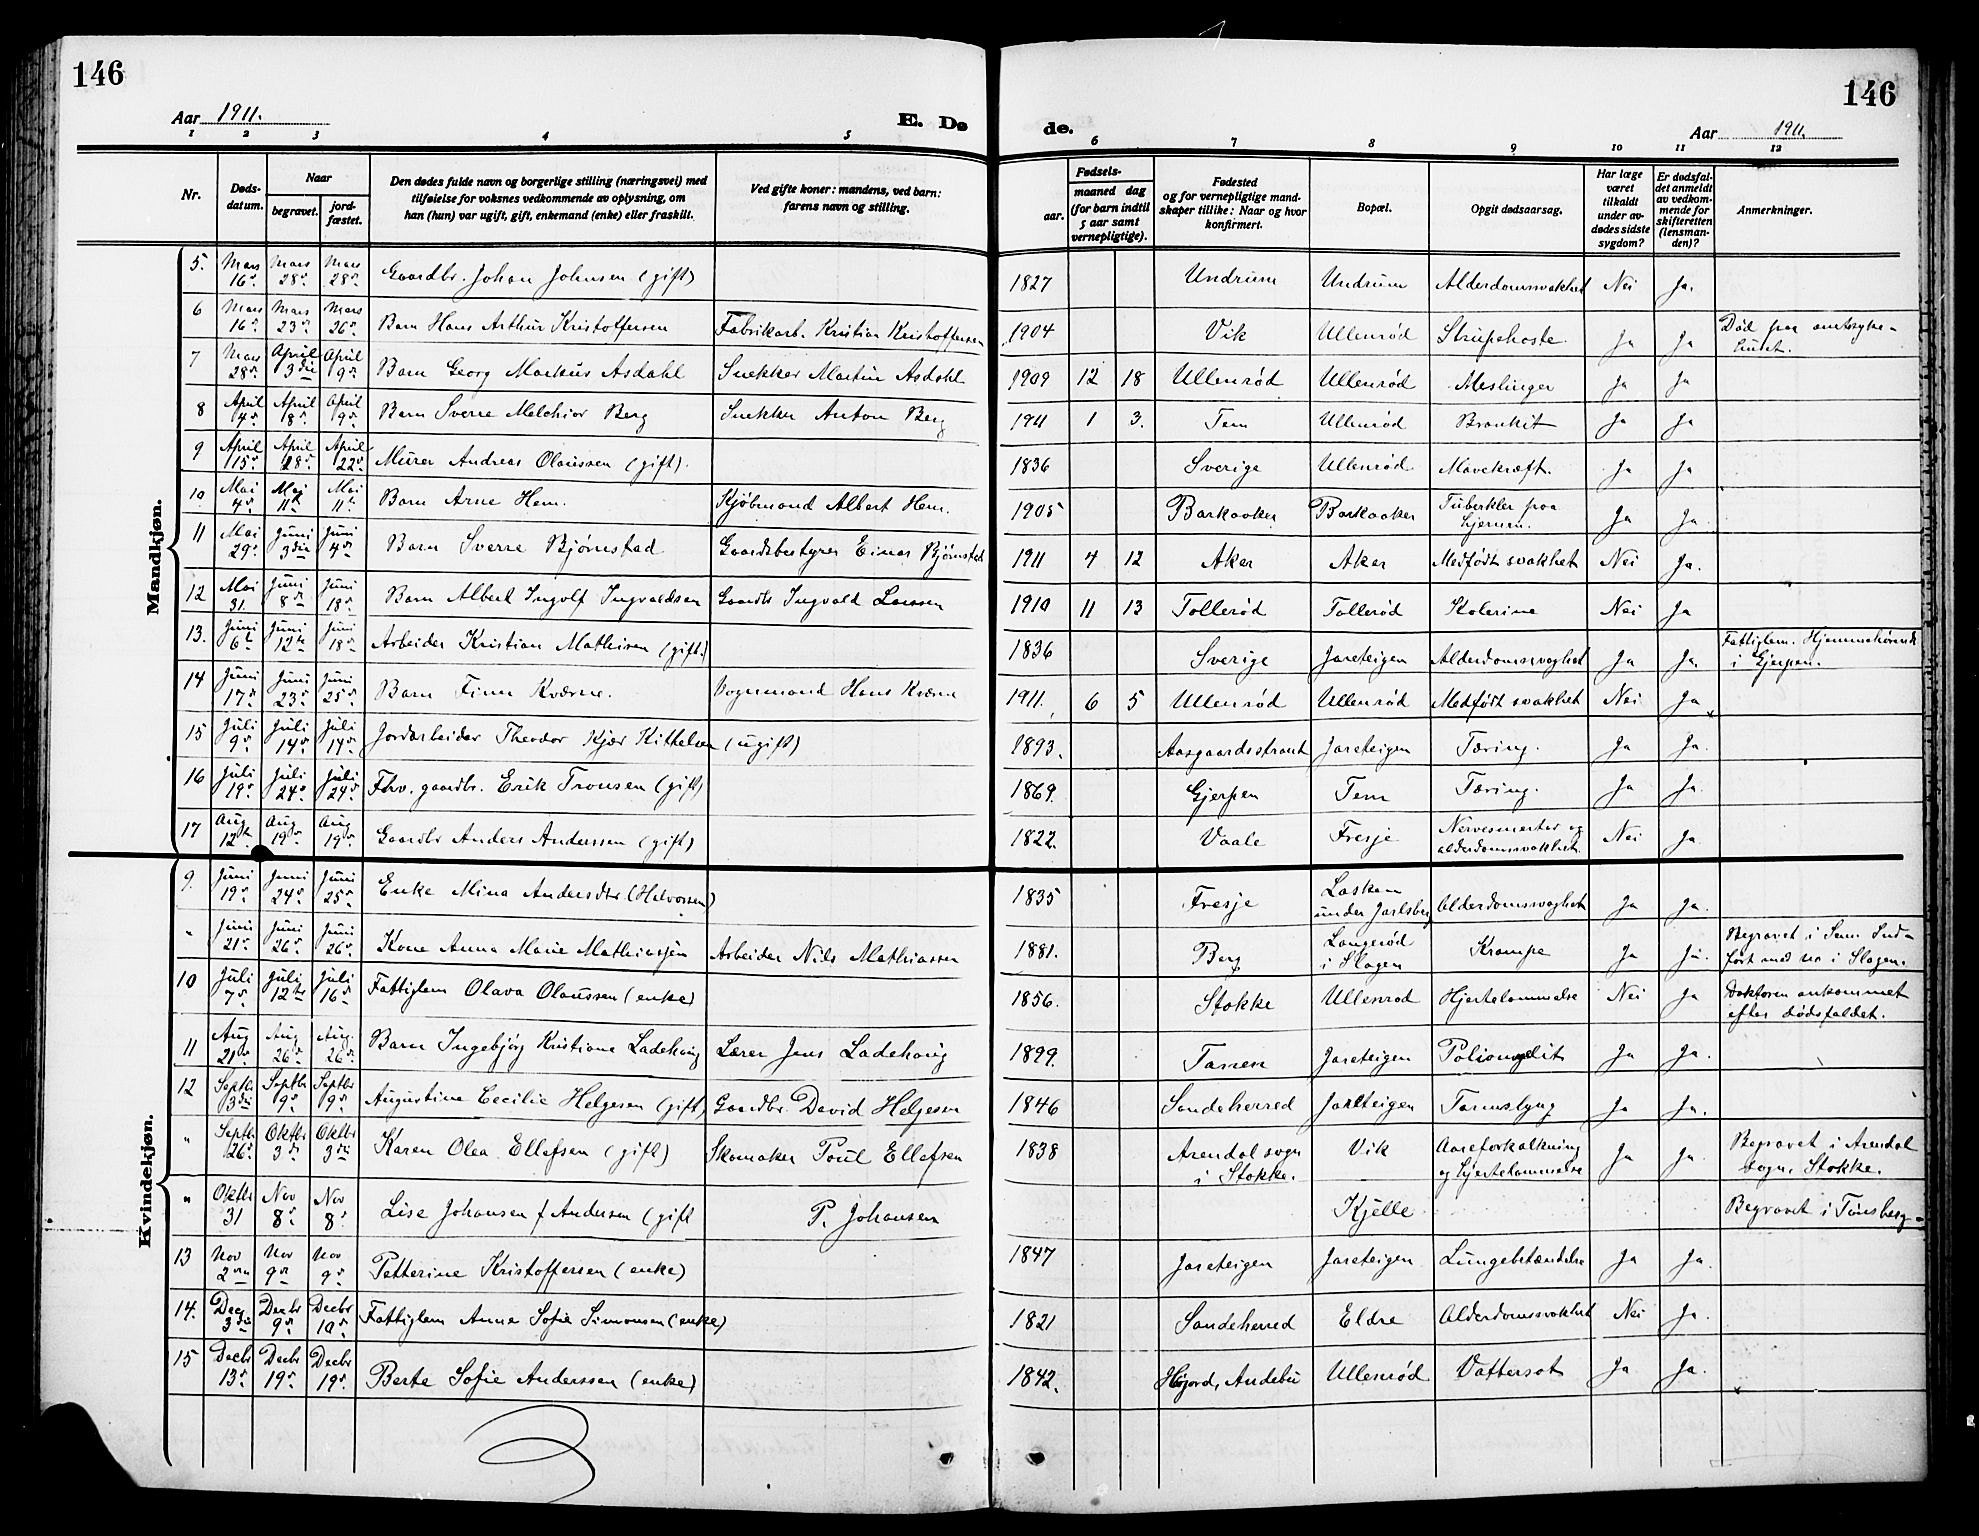 146
Aar 1911.
E. Dø
de.
Aar 1911.
146
1 2 3 4 5 6 7 8 9 10 11 12
Nr.
Døds-
datum.
Naar
begravet.
jord-
fæstet.
Den dødes fulde navn og borgerlige stilling (næringsvei) med
tilføielse for voksnes vedkommende av oplysning, om
han (hun) var ugift, gift, enkemand (enke) eller fraskilt.
Ved gifte koner: mandens, ved barn:
farens navn og stilling.
Fødsels-
aar.
maaned dag
(for barn indtil
5 aar samt
vernepligtige).
Fødested
og for vernepligtige mand-
skaper tillike: Naar og hvor
konfirmert.
Bopæl.
Opgit dødsaarsag.
Har læge
været
tilkaldt
under av-
dødes sidste
sygdom?
Er dødsfal-
det anmeldt
av vedkom-
mende for
skifteretten
(lensman-
den)?
Anmerkninger.
Mandkjøn.
5. Mars 16. Mars 28. Mars 28. Gaardbr. Johan Johnsen (gift) 1827 Undrum Undrum Alderdomssvakhet Nei Ja.
6 Mars 16. Mars 23. Mars 26. Barn Hans Arthur Kristoffersen Fabrikarb. Kristian Kristoffersen 1904 Vik Ullenrød Strupehoste. Ja Ja Død paa amtssyke-
huset.
7 Mars 28. April 3die April 9. Barn Georg Markus Asdahl Snekker Martin Asdahl 1909 12 18 Ullenrød Ullenrød Meslinger Ja Ja
8 April 4. April 18. April 9. Barn Sverre Melchior Berg Snekker Anton Berg 1911 1 3. Tem Ullenrød Bronkit Ja Ja
9 April 15. April 18. April 22. Murer Andreas Olaussen (gift). 1836 Sverige Ullenrød Mavekræft. Ja Ja
10. Mai 4. Mai 11. Mai 11. Barn Arne Hem. Kjøbmand Albert Hem. 1905 Barkaaker Barkaaker Tuberkler paa
hjernen. Ja Ja.
11 Mai 29. Juni 3die Juni 4. Barn Sverre Bjørnstad Gaardsbestyrer Einar Bjørnstad 1911 4 12 Aker Aker Medfødt svakhet Nei Ja.
12 Mai 31. Juni 8. Juni 18. Barn Albert Ingolf Ingvaldsen Gaardb. Ingvald Larssen 1910 11 13 Tollerød Tollerød Kolerine Nei Ja
13. Juni 6. Juni 12. Juni 18. Arbeider Kristian Mathisen (gift.) 1836 Sverige Jareteigen Alderdomssvaghet Ja Ja. Fattiglem. Hjemmehørende
i Gjerpen.
14 Juni 17. Juni 23. Juni 25. Barn Finn Kværne. Vognmand Hans Kværne 1911. 6 5 Ullenrød Ullenrød Medfødt svakhet Nei Ja
15 Juli 9. Juli 14. Juli 14. Jordarbeider Theodor Kjær Kittelsen (ugift) 1893. Aasgaardsstrant Jareteigen Tæring. Ja Ja.
16 Juli 19. Juli 24. Juli 24. Fhv. gaardbr. Erik Tronsen (gift) 1869. Gjerpen Tem Tæring. Ja Ja.
17 Aug 12. Aug 19. Aug 19. Gaardbr Anders Anderssen (gift) 1822. Vaale Fresje Nervesmerter og
alderdomssvakhet. Nei Ja
Kvindekjøn.
9. Juni 19. Juni 24. Juni 25. Enke Mina Andersdtr (Halvorsen) 1835 Fresje
under Jarlsberg Alderdomssvaghet Ja Ja.
" Juni 21. Juni 26. Juni 26. Kone Anna Marie Mathiassen Arbeider Nils Mathiassen 1881. Berg Langerød
i Slagen Krampe Ja Ja. Begravet i Sem. Ind-
ført med no i Slagen.
10 Juli 7. Juli 12te Juli 16. Fattiglem Olava Olaussen (enke) 1856. Stokke Ullenrød Hjertelammelse Nei Ja Doktoren ankommet
efter dødsfaldet.
11 Aug 21. Aug 26. Aug. 26. Barn Ingebjørg Kristiane Ladehaug Lærer Jens Ladehaug 1899. Jareteigen Ja Ja.
12 Septbr. 3die Septbr 9. Septbr 9. Augustine Cecilie Helgesen (gift) Gaardbr. David Helgesen 1846 Sandeherred Jarlteigen Tarmslyng Ja Ja.
" Septbr 26. Oktbr 3die Oktbr 3die Karen Olea Ellefsen (gift) Skomaker Poul Ellefsen 1838 Arendal sogn
i Stokke. Vik Aareforkalkning
og hjertelammelse Ja Ja. Begravet i Arendal
sogn. Stokke.
" Oktbr 31 Nov 8. Nov 8. Lise Johansen f Andersen (gift P. Johansen Kjelle Begravet i Tønsberg
13 Nov 2. Nov 9. Nov 9. Petterine Kristoffersen (enke) 1847 Jareteigen Jareteigen Lungebetændelse Ja Ja.
14. Decbr 3die Decbr 9. Decbr 10. Fattiglem Anne Sofie Simonsen (enke) 1821 Sandeherred Eldre Alderdomssvakhet Nei Ja.
15 Decbr 13. Decbr 19. Decbr 19. Berte Sofie Anderssen (enke) 1842. Højord, Andebu Ullenrød Vattersot Ja Ja.